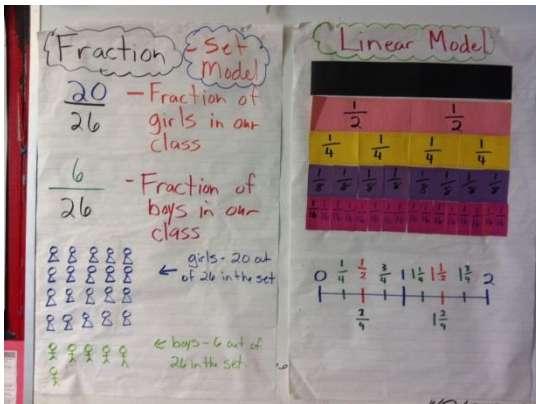 Fraction - Set
Model
20
26
- Fraction of
girls in our
class
6
26
- Fraction of
boys in our
class
← girls - 20 out
of 26 in the set
← boys - 6 out of
26 in the set
Linear Model
1/2 1/2
1/4 1/4 1/4 1/4
1/8 1/8 1/8 1/8 1/8 1/8 1/8 1/8
1/16 1/16 1/16 1/16 1/16 1/16 1/16 1/16 1/16 1/16 1/16 1/16 1/16 1/16 1/16 1/16
0 1/4 1/2 3/4 1 1 1/4 1 1/2 1 3/4 2
2/4 1 2/4